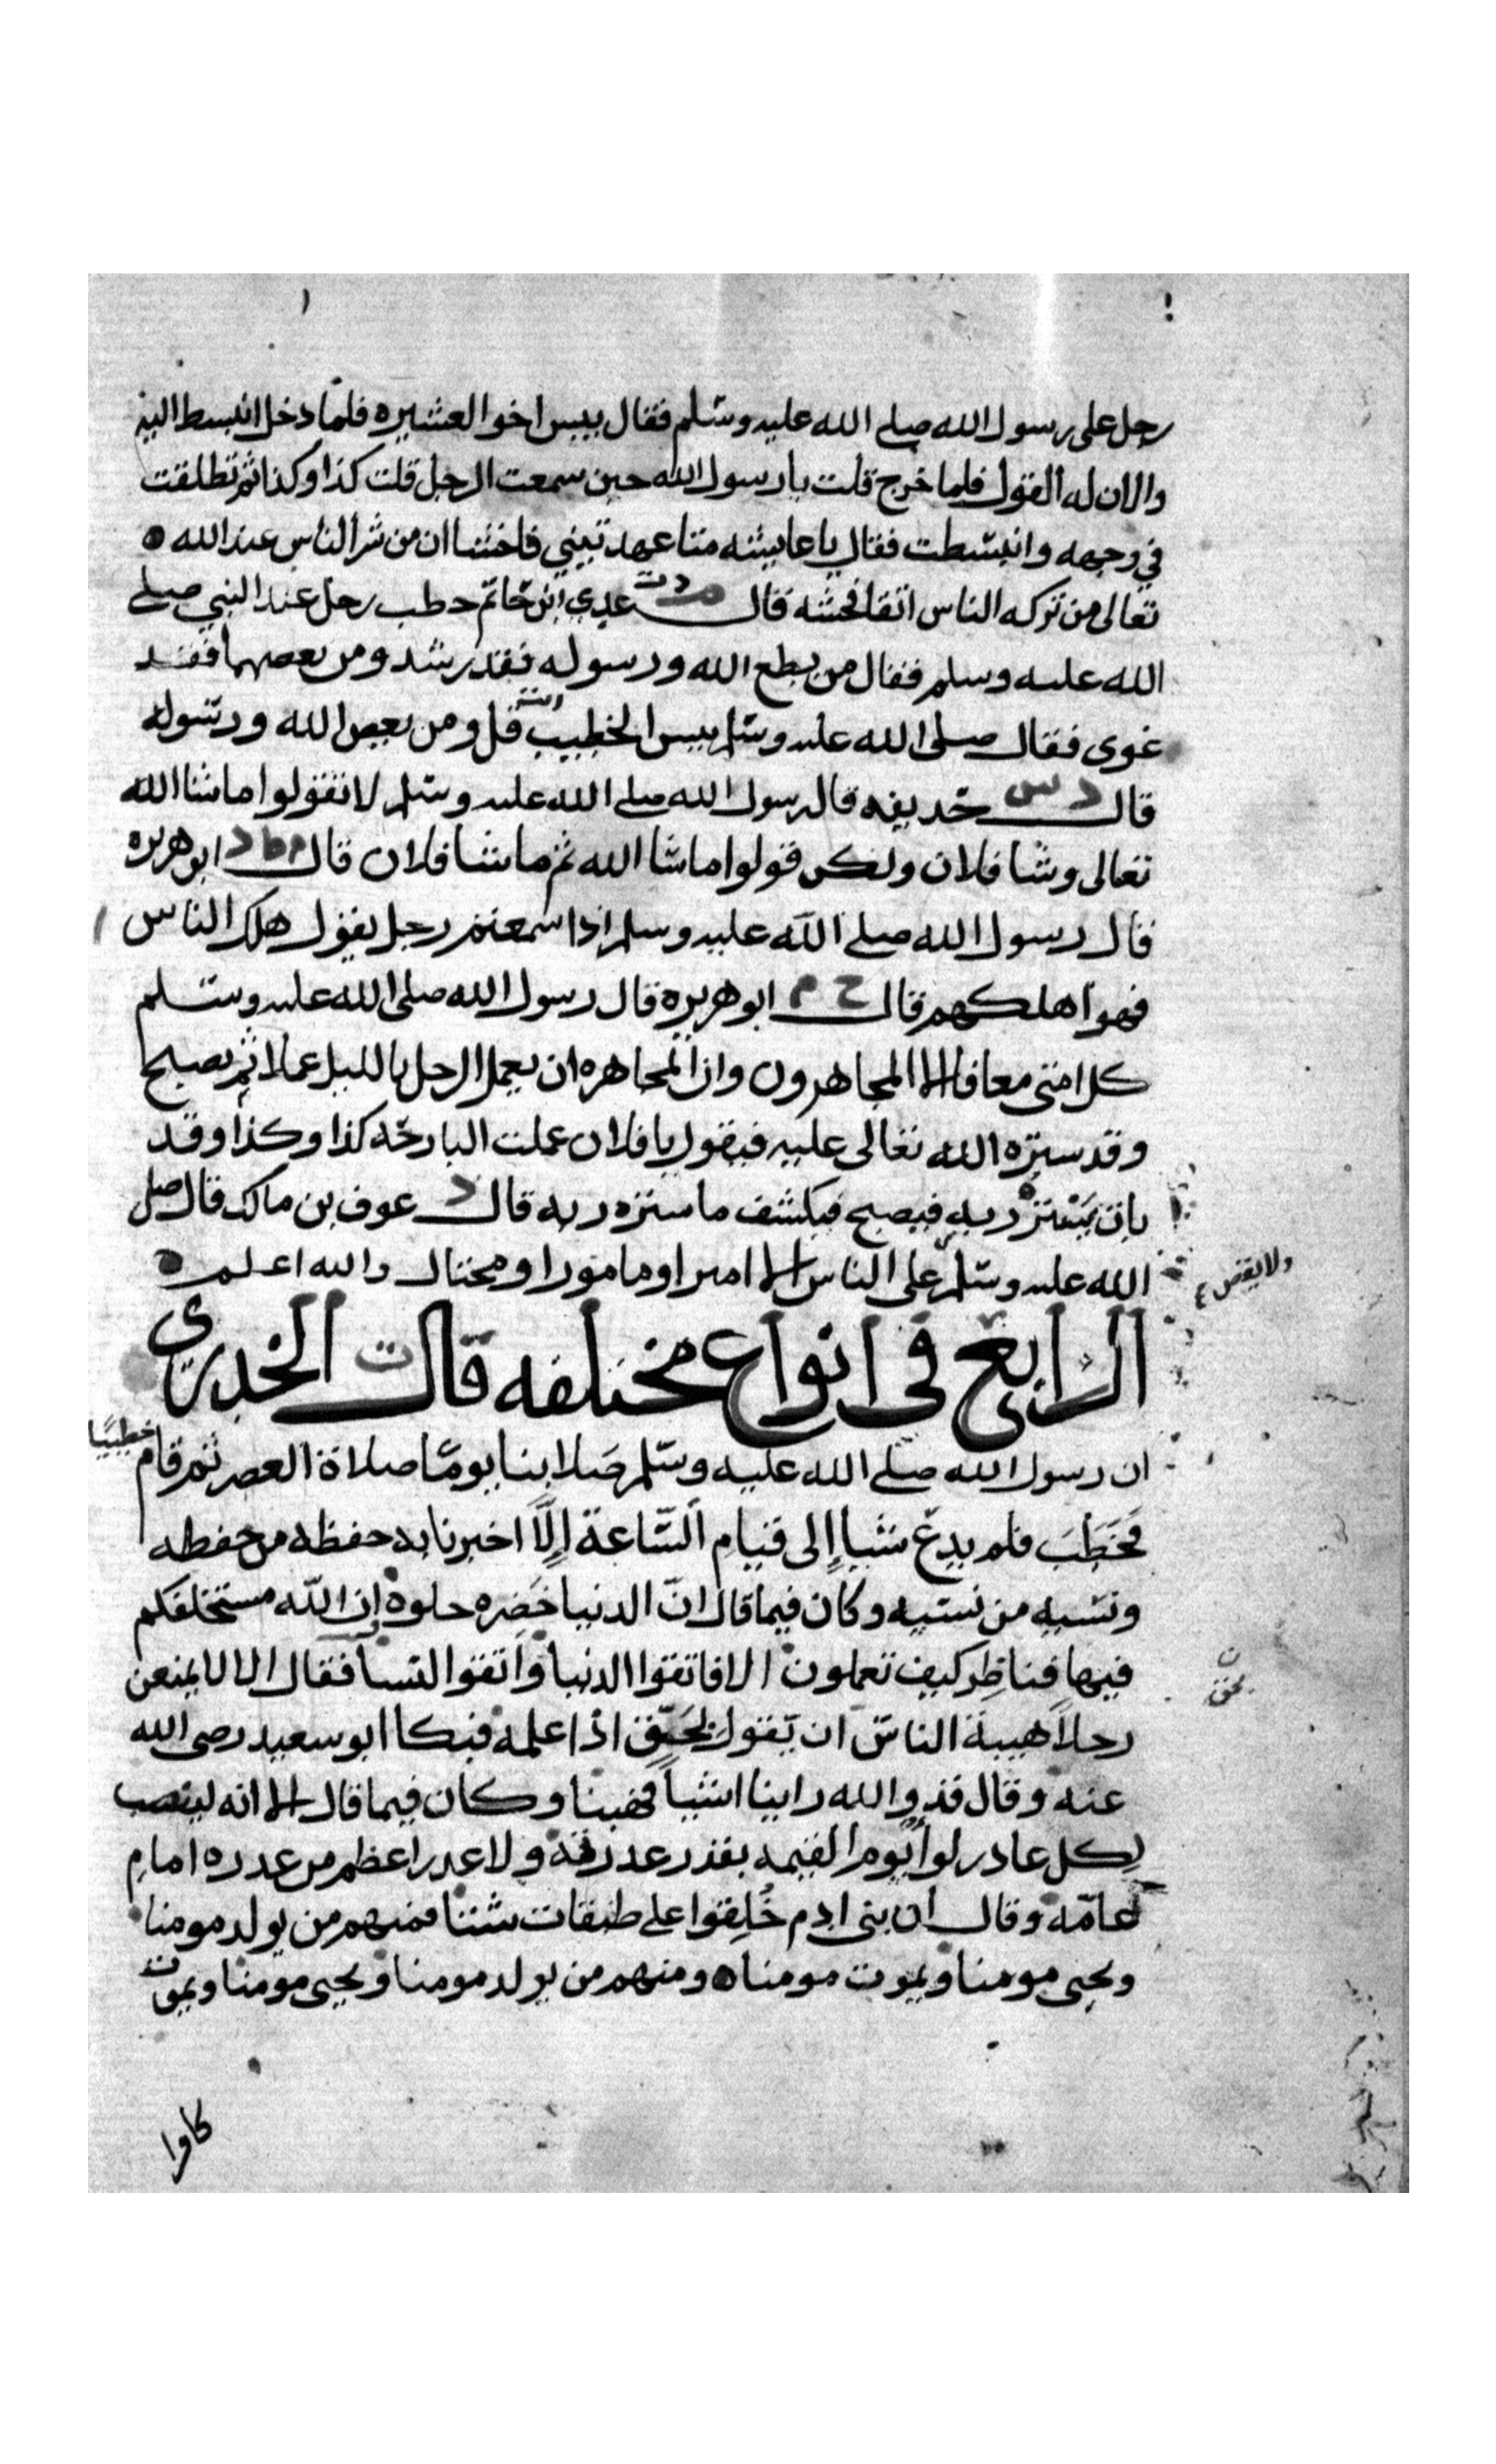 رجل على رسول الله صلى الله عليه وسلم فقال بيس اخوا العشيره فلما دخل انبسط اليه
والان له القول فلما خرج قلت يا رسول الله حين سمعت الرجل قلت كذا وكذا ثم تطلقت
في وجهه وانبسطت فقال يا عايشه متا عهدتيني فاحشا ان من شر الناس عند الله
تعالى من تركه الناس اتقا فحشه قال م د ت عدي ابن حاتم خطب رجل عند النبي صلى
الله عليه وسلم فقال من يطع الله ورسوله فقد رشد ومن يعصهما فقد
غوى فقال صلى الله عليه وسلم بيس الخطيب انت قل ومن يعص الله ورسوله
قال د س حذيفه قال رسول الله صلى الله عليه وسلم لا تقولوا ما شا الله
تعالى وشا فلان ولكن قولوا ما شا الله ثم ما شا فلان قال م ط د ابو هريره
قال رسول الله صلى الله عليه وسلم اذا سمعتم رجل يقول هلك الناس
فهو اهلكهم قال خ م ابو هريره قال رسول الله صلى الله عليه وسلم
كل امتى معافا الا المجاهرون وان المجاهره ان يعمل الرجل بالليل عملا ثم يصبح
وقد ستره الله تعالى عليه فيقول يا فلان عملت البارحه كذا وكذا وقد
بات يستره ربه فيصبح فيكشف ما ستره ربه قال د عوف بن مالك قال صلى
الله عليه وسلم على الناس الا امير او مامور او مختال والله اعلم
ولا يقص
الرابع في انواع مختلفه قال ت الخدري
ان رسول الله صلى الله عليه وسلم صلا بنا يوما صلاة العصر ثم قام خطيبا
فخطب فلم يدع شيا إلى قيام الساعة إلا اخبرنا به حفظه من حفظه
ونسيه من نسيه وكان فيما قال ان الدنيا خضره حلوة إن الله مستخلفكم
فيها فناظر كيف تعملون الا فاتقوا الدنيا واتقوا النسا فقال الا لا يمنعن
رجلا هيبة الناس ان يقول بحق اذا علمه فبكا ابو سعيد رضى الله
بحق
عنه وقال قد والله راينا اشيا فهبنا وكان فيما قال الا انه لينصب
لكل غادر لوا يوم القيمه بقدر غدرته ولا غدر اعظم من غدره امام
عامة وقال ان بنى ادم خلقوا على طبقات شتا فمنهم من يولد مومنا
ويحيى مومنا ويموت مومنا ومنهم من يولد مومنا ويحيى مومنا ويموت
كافرا